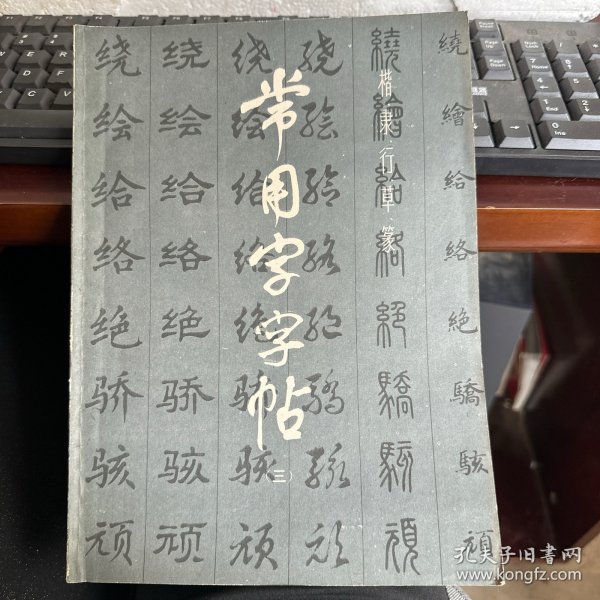 常用字字帖
(三)
楷·隶·行·草·篆
绕 绕 绕 绕 繞 繞
绘 绘 绘 绘 繪 繪
给 给 给 给 給 給
络 络 络 络 絡 絡
绝 绝 绝 绝 絕 絶
骄 骄 骄 骄 驕 驕
骇 骇 骇 骇 駭 駭
顽 顽 顽 顽 頑 頑
孔夫子旧书网
www.kongfz.com